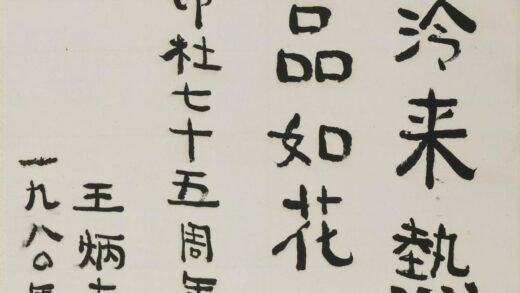 泠来熱
品如花
印社七十五周年
王炳
一九八〇年